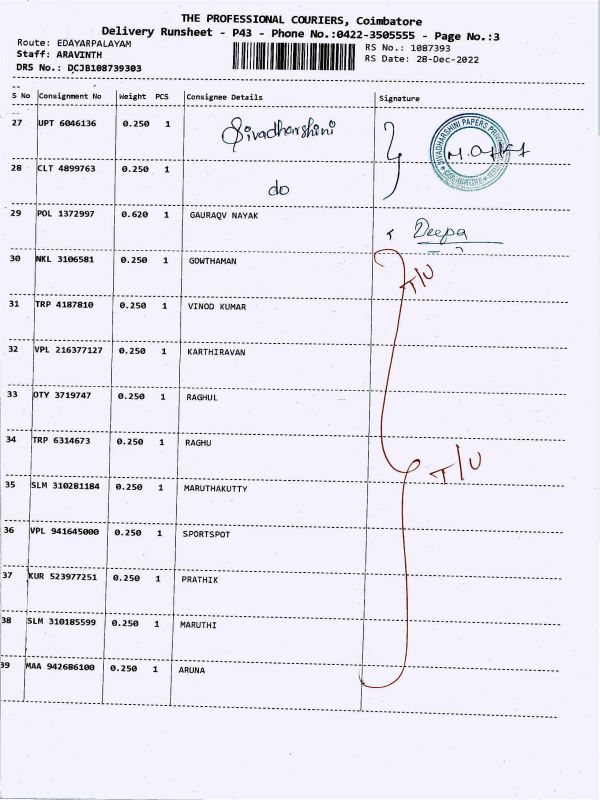 THE PROFESSIONAL COURIERS, Coimbatore
Delivery Runsheet - P43 - Phone No.:0422-3505555 - Page No.:3
Route: EDAYARPALAYAM RS No.: 1087393
Staff: ARAVINTH RS Date: 28-Dec-2022
DRS No.: DCJB108739303
S No Consignment No Weight PCS Consignee Details Signature
27 UPT 6046136 0.250 1 Sivadharshini
28 CLT 4899763 0.250 1 do
29 POL 1372997 0.620 1 GAURAQV NAYAK Deepa
30 NKL 3106581 0.250 1 GOWTHAMAN T/U
31 TRP 4187810 0.250 1 VINOD KUMAR
32 VPL 216377127 0.250 1 KARTHIRAVAN
33 OTY 3719747 0.250 1 RAGHUL
34 TRP 6314673 0.250 1 RAGHU T/U
35 SLM 310281184 0.250 1 MARUTHAKUTTY
36 VPL 941645000 0.250 1 SPORTSPOT
37 KUR 523977251 0.250 1 PRATHIK
38 SLM 310185599 0.250 1 MARUTHI
39 MAA 942686100 0.250 1 ARUNA